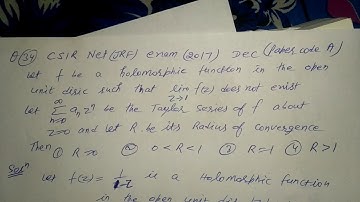 Q(34) CSIR Net (JRF) exam (2017) DEC (Paper code A)
Let f be a holomorphic function in the open
unit disic such that lim z→1 f(z) does not exist
Let ∞ Σ n=0 aₙ zⁿ be the Taylor series of f about
z=0 and let R be its Radius of convergence
Then ① R=0 ② 0<R<1 ③ R=1 ④ R>1
Solⁿ Let f(z)= 1/1-z is a Holomorphic function
in the open unit